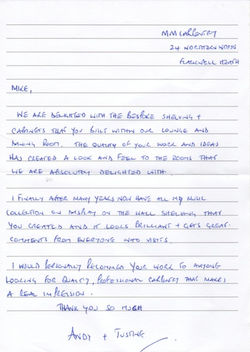 MM CARPENTRY
24 NORTHERN WOODS
FLACKWELL HEATH
MIKE,
WE ARE DELIGHTED WITH THE BESPOKE SHELVING +
CABINETS THAT YOU BUILT WITHIN OUR LOUNGE AND
DINING ROOM. THE QUALITY OF YOUR WORK AND IDEAS
HAS CREATED A LOOK AND FEEL TO THE ROOMS THAT
WE ARE ABSOLUTELY DELIGHTED WITH.
I FINALLY AFTER MANY YEARS NOW HAVE ALL MY
COLLECTION ON DISPLAY ON THE WALL SHELVING THAT
YOU CREATED AND IT LOOKS BRILLIANT + GETS GREAT
COMMENTS FROM EVERYONE WHO VISITS.
I WOULD PERSONALLY RECOMMEND YOUR WORK TO ANYONE
LOOKING FOR QUALITY, PROFESSIONAL CARPENTRY THAT MAKES
A REAL IMPRESSION.
THANK YOU SO MUCH
ANDY + JUSTINE